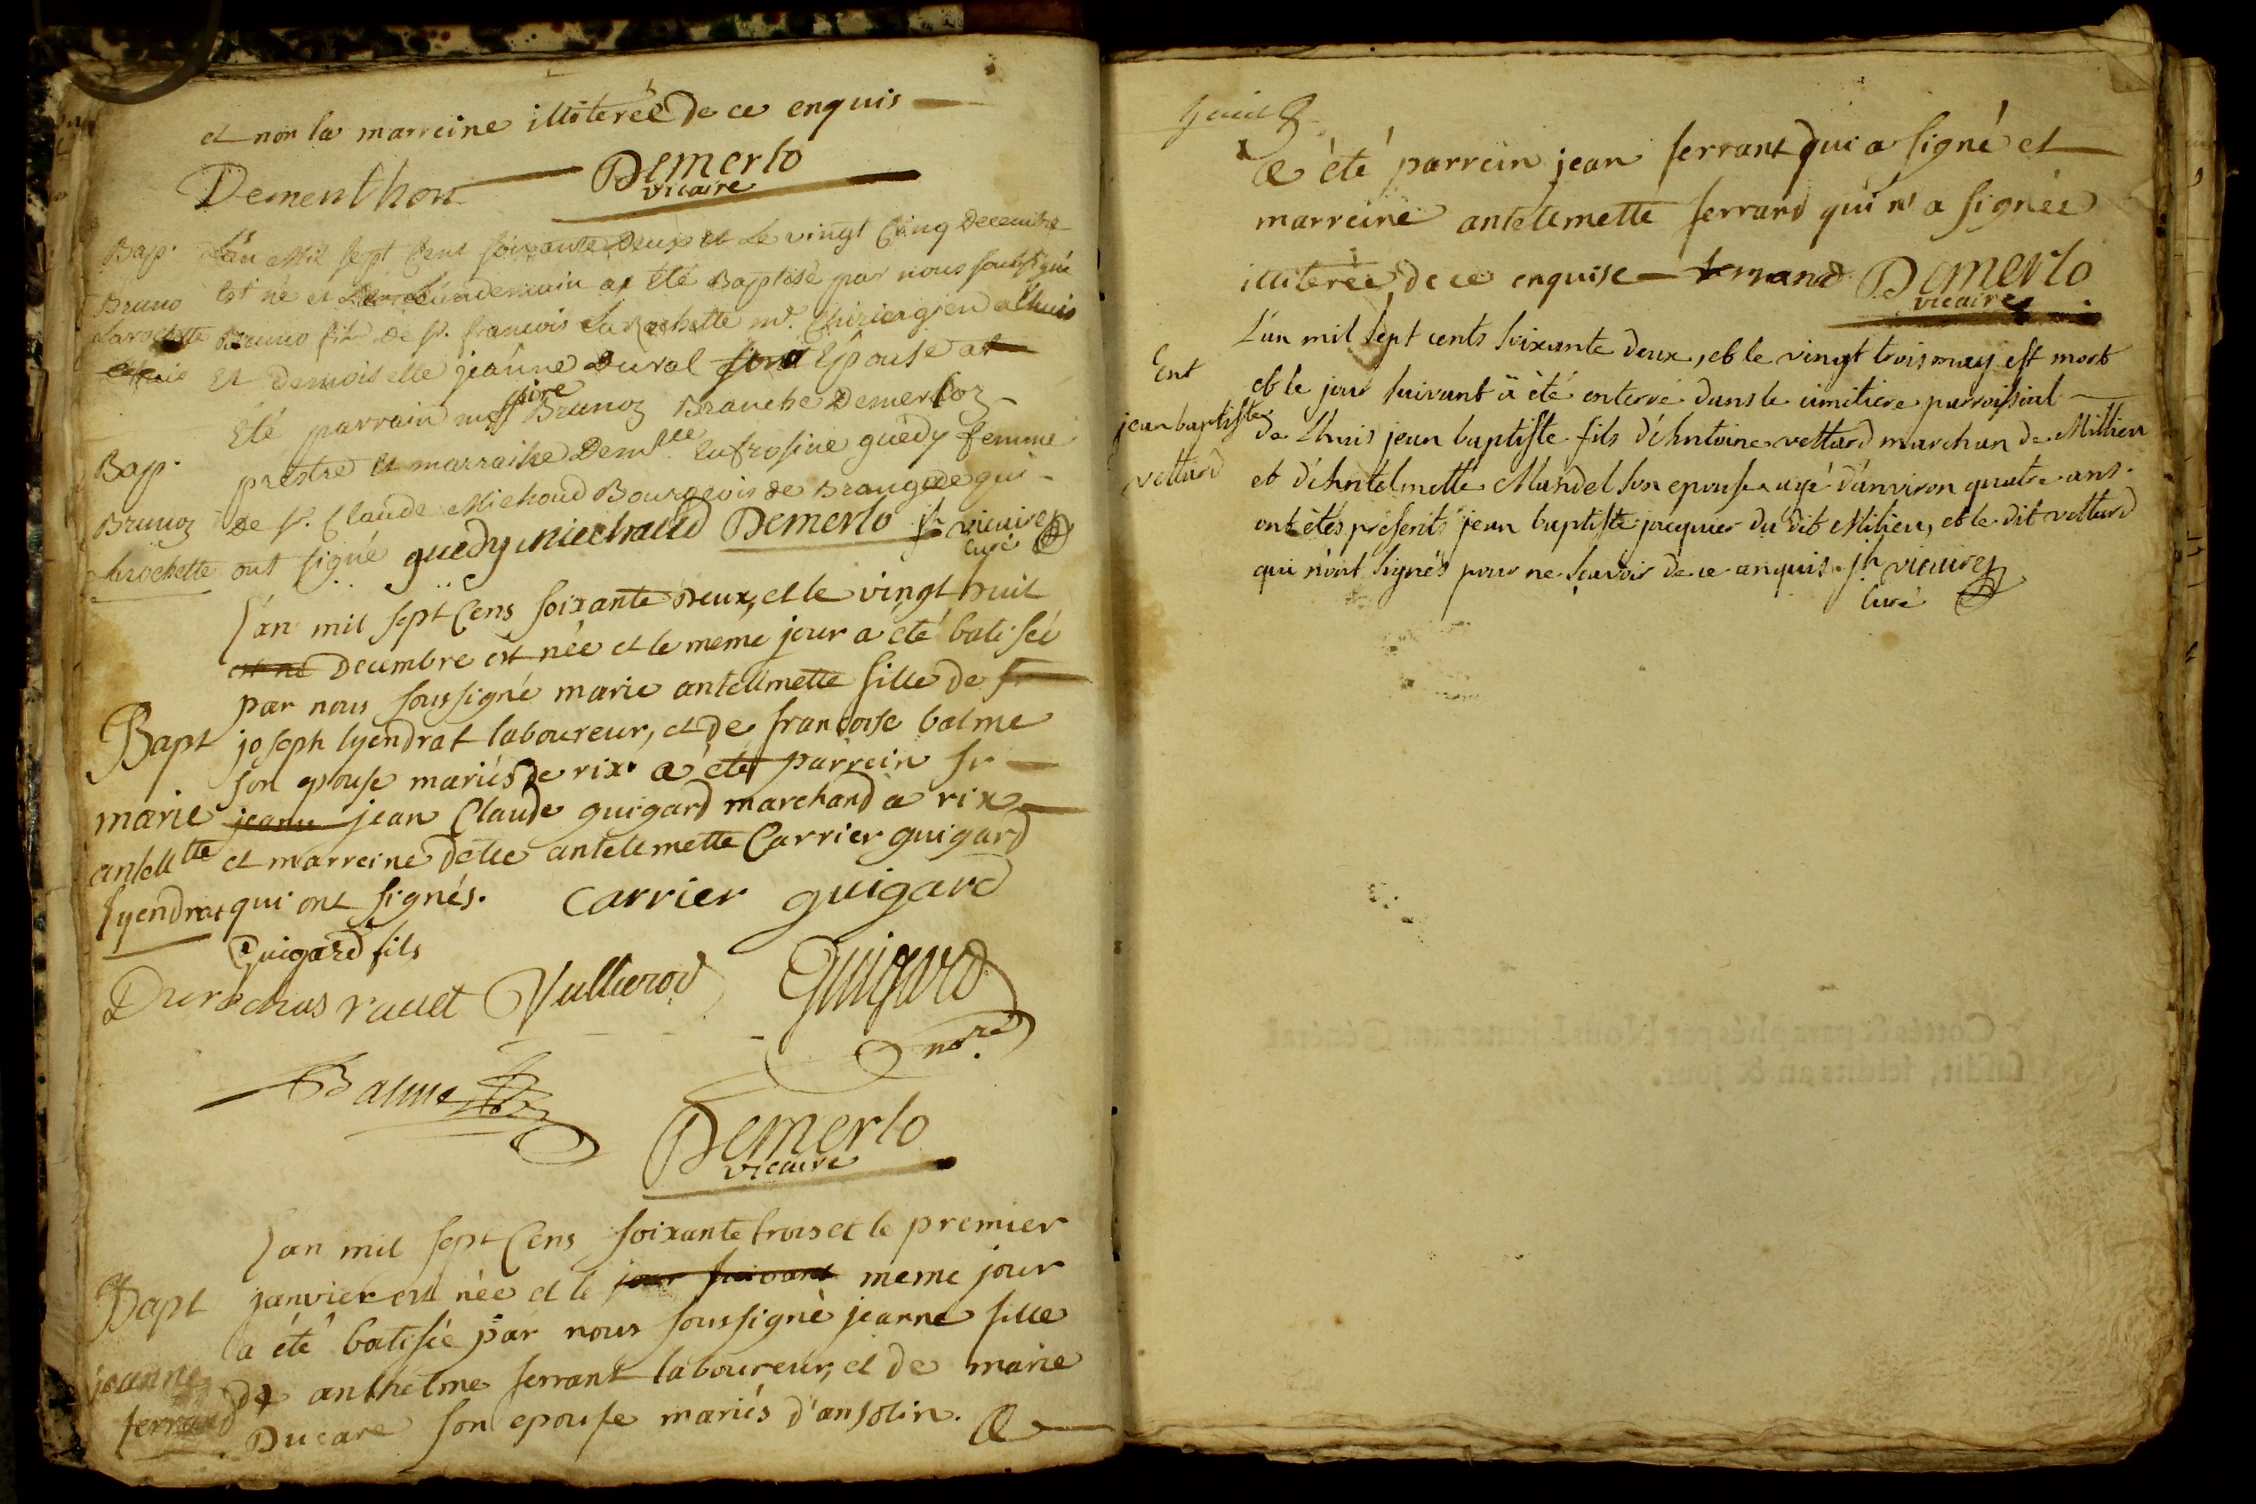 et non la marreine illiterée de ce enquis
Dementhon Demerlo
vicaire
Bap. L'an Mil sept Cent soixante Deux et Le vingt Cinq Decembre
Bruno Est né et Lendemain at Eté Baptisé par nous soussigné
Larochette Bruno fils de sr. francois Larochette mr. Chirurgien a Lhuis
Et Demoiselle jeanne Duval son Epouse at
Eté parrain messire Brunoz Branche Demerloz
Bap. prestre et marraine Demlle Eufrosine guedy femme
Brunoz de sr. Claude Michoud Bourgeois de Brangde qui
larochette ont signé guedy michaud Demerlo jh vicaire
Curé
L'an mil sept Cens soixante Deux, et le vingt huit
est né Decembre est née et le meme jour a eté batisée
par nous soussigné marie antelmette fille de sr
Bapt joseph lyendrat laboureur, et de francoise balme
son epouse mariés de rix a eté parrein sr
marie jeanne jean Claude guigard marchand a rix
antelltte et marreine delle antelemette Carrier guigard
lyendrat qui ont signés. Carrier guigard
Guigard fils
Durochas rauet Vullierod Guigard
nore
Balme
Demerlo
vicaire
L'an mil sept Cens soixante trois et le premier
Bapt janvier est née et le jour suivant meme jour
a été batisée par nous soussigné jeanne fille
jeanne de anthelme ferrant laboureur, et de marie
ferrand Ducare son epouse mariés d'ansolin. a
a été parrein jean ferrant qui a signé et
marreine antelemette ferrand qui n'a signée
illiterée de ce enquise ferrand Demerlo
vicaire
L'an mil sept cents soixante deux, et le vingt trois may est mort
Ent et le jour suivant a été enterré dans le cimitiere parroissial
jean baptiste de Lhuis jean baptiste fils d'Antoine vettard marchan de Millieu
vettard et d'Antelmette Mandel son epouse agé d'anviron quatre ans
ont étés présents jean baptiste jacquier du dit Milieu, et le dit vettard
qui n'ont signés pour ne sçavoir de ce anquis. jh vicaire
Curé